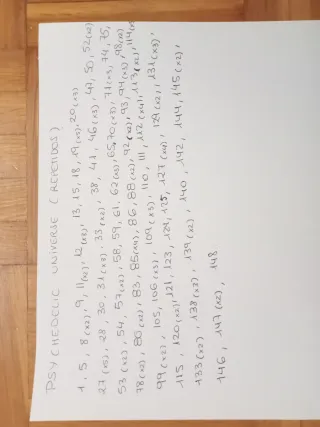 PSYCHEDELIC UNIVERSE (REPETIDOS)
1, 5, 8(x2), 9, 11(x2), 12(x2), 13, 15, 18, 19(x2), 20(x3)
27(x5), 28, 30, 31(x2), 33(x2), 38, 41, 46(x3), 47, 50, 52(x2)
53(x2), 54, 57(x2), 58, 59, 61, 62(x2), 65, 70(x3), 71(x3), 74, 75,
78(x2), 80(x2), 83, 85(x4), 86, 88(x2), 92(x2), 93, 94(x3), 98(x2)
99(x2), 105, 106(x3), 109(x3), 110, 111, 112(x4), 113(x2), 114
115, 120(x2), 121, 123, 124, 125, 127, 129(x2), 131(x3),
133(x2), 138(x2), 139(x2), 140, 142, 144, 145(x2),
146, 147(x2), 148